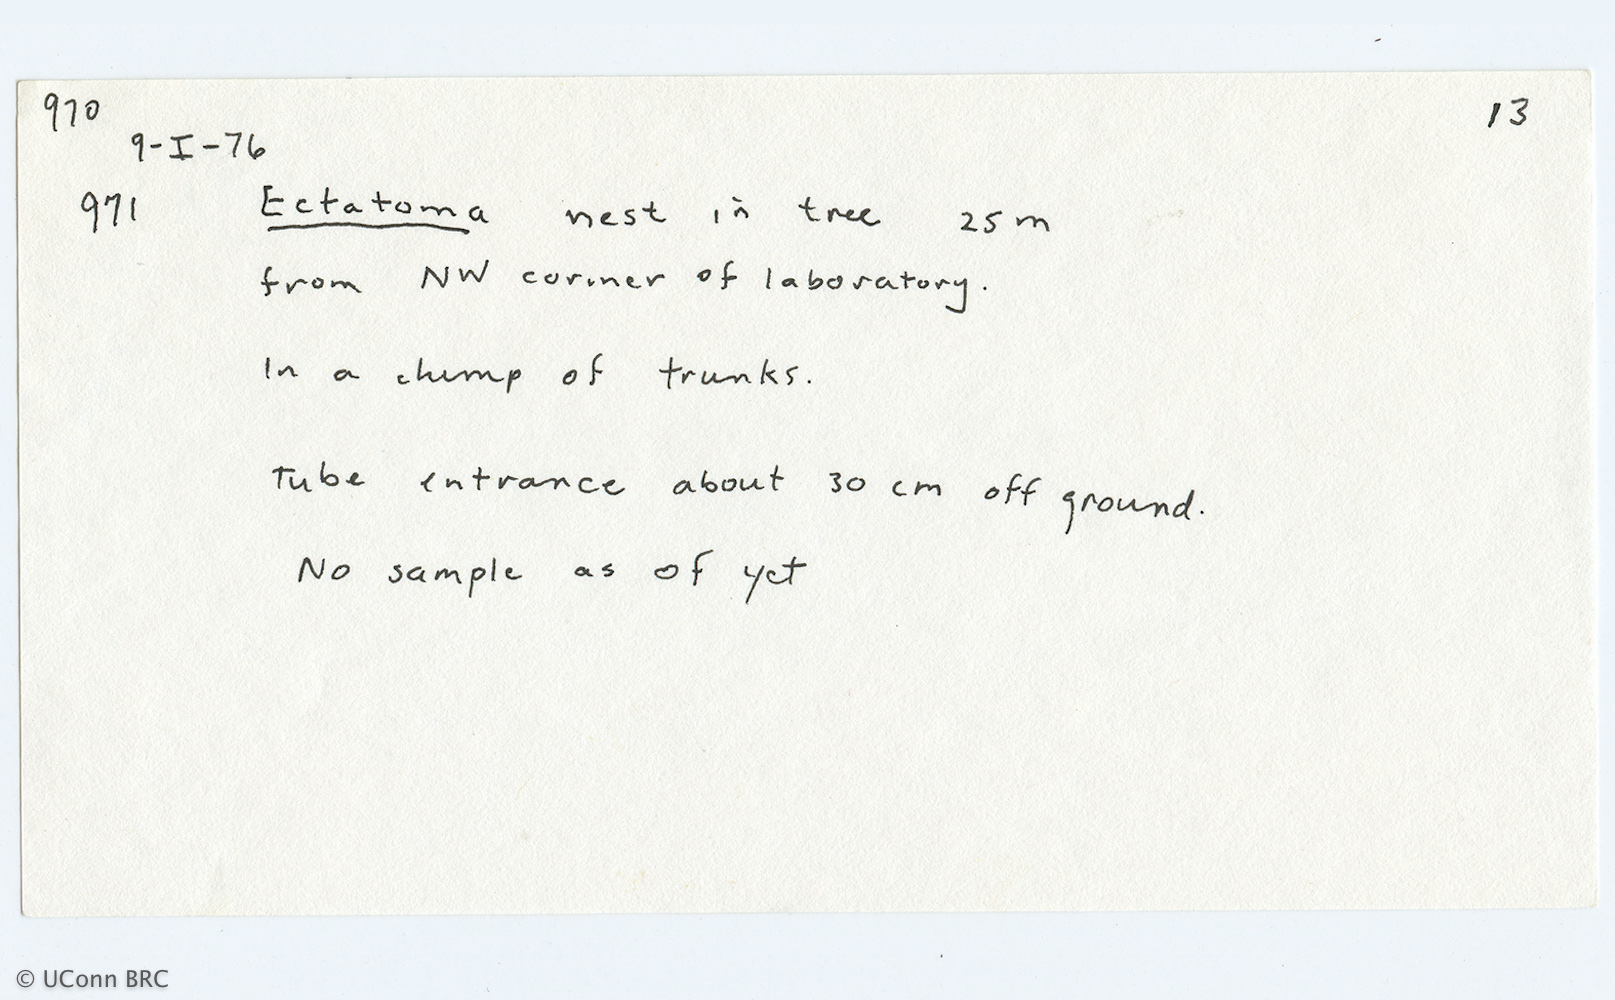 970
13
9-I-76
971 Ectatoma nest in tree 25 m
from NW corner of laboratory.
In a clump of trunks.
Tube entrance about 30 cm off ground.
No sample as of yet
© UConn BRC